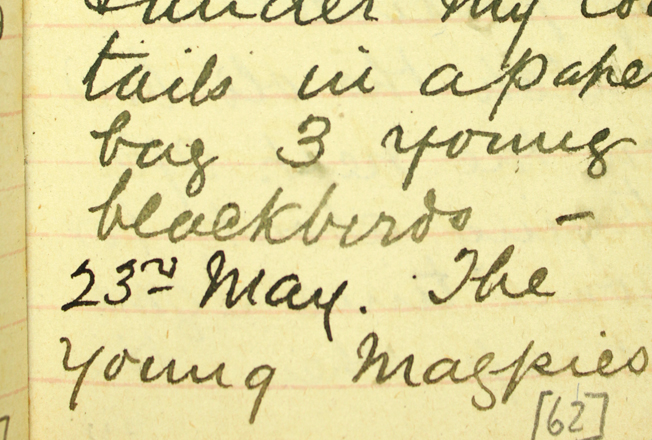 under my
tails in a pape
bag 3 young
blackbirds –
23rd May. The
young Magpies
[62]